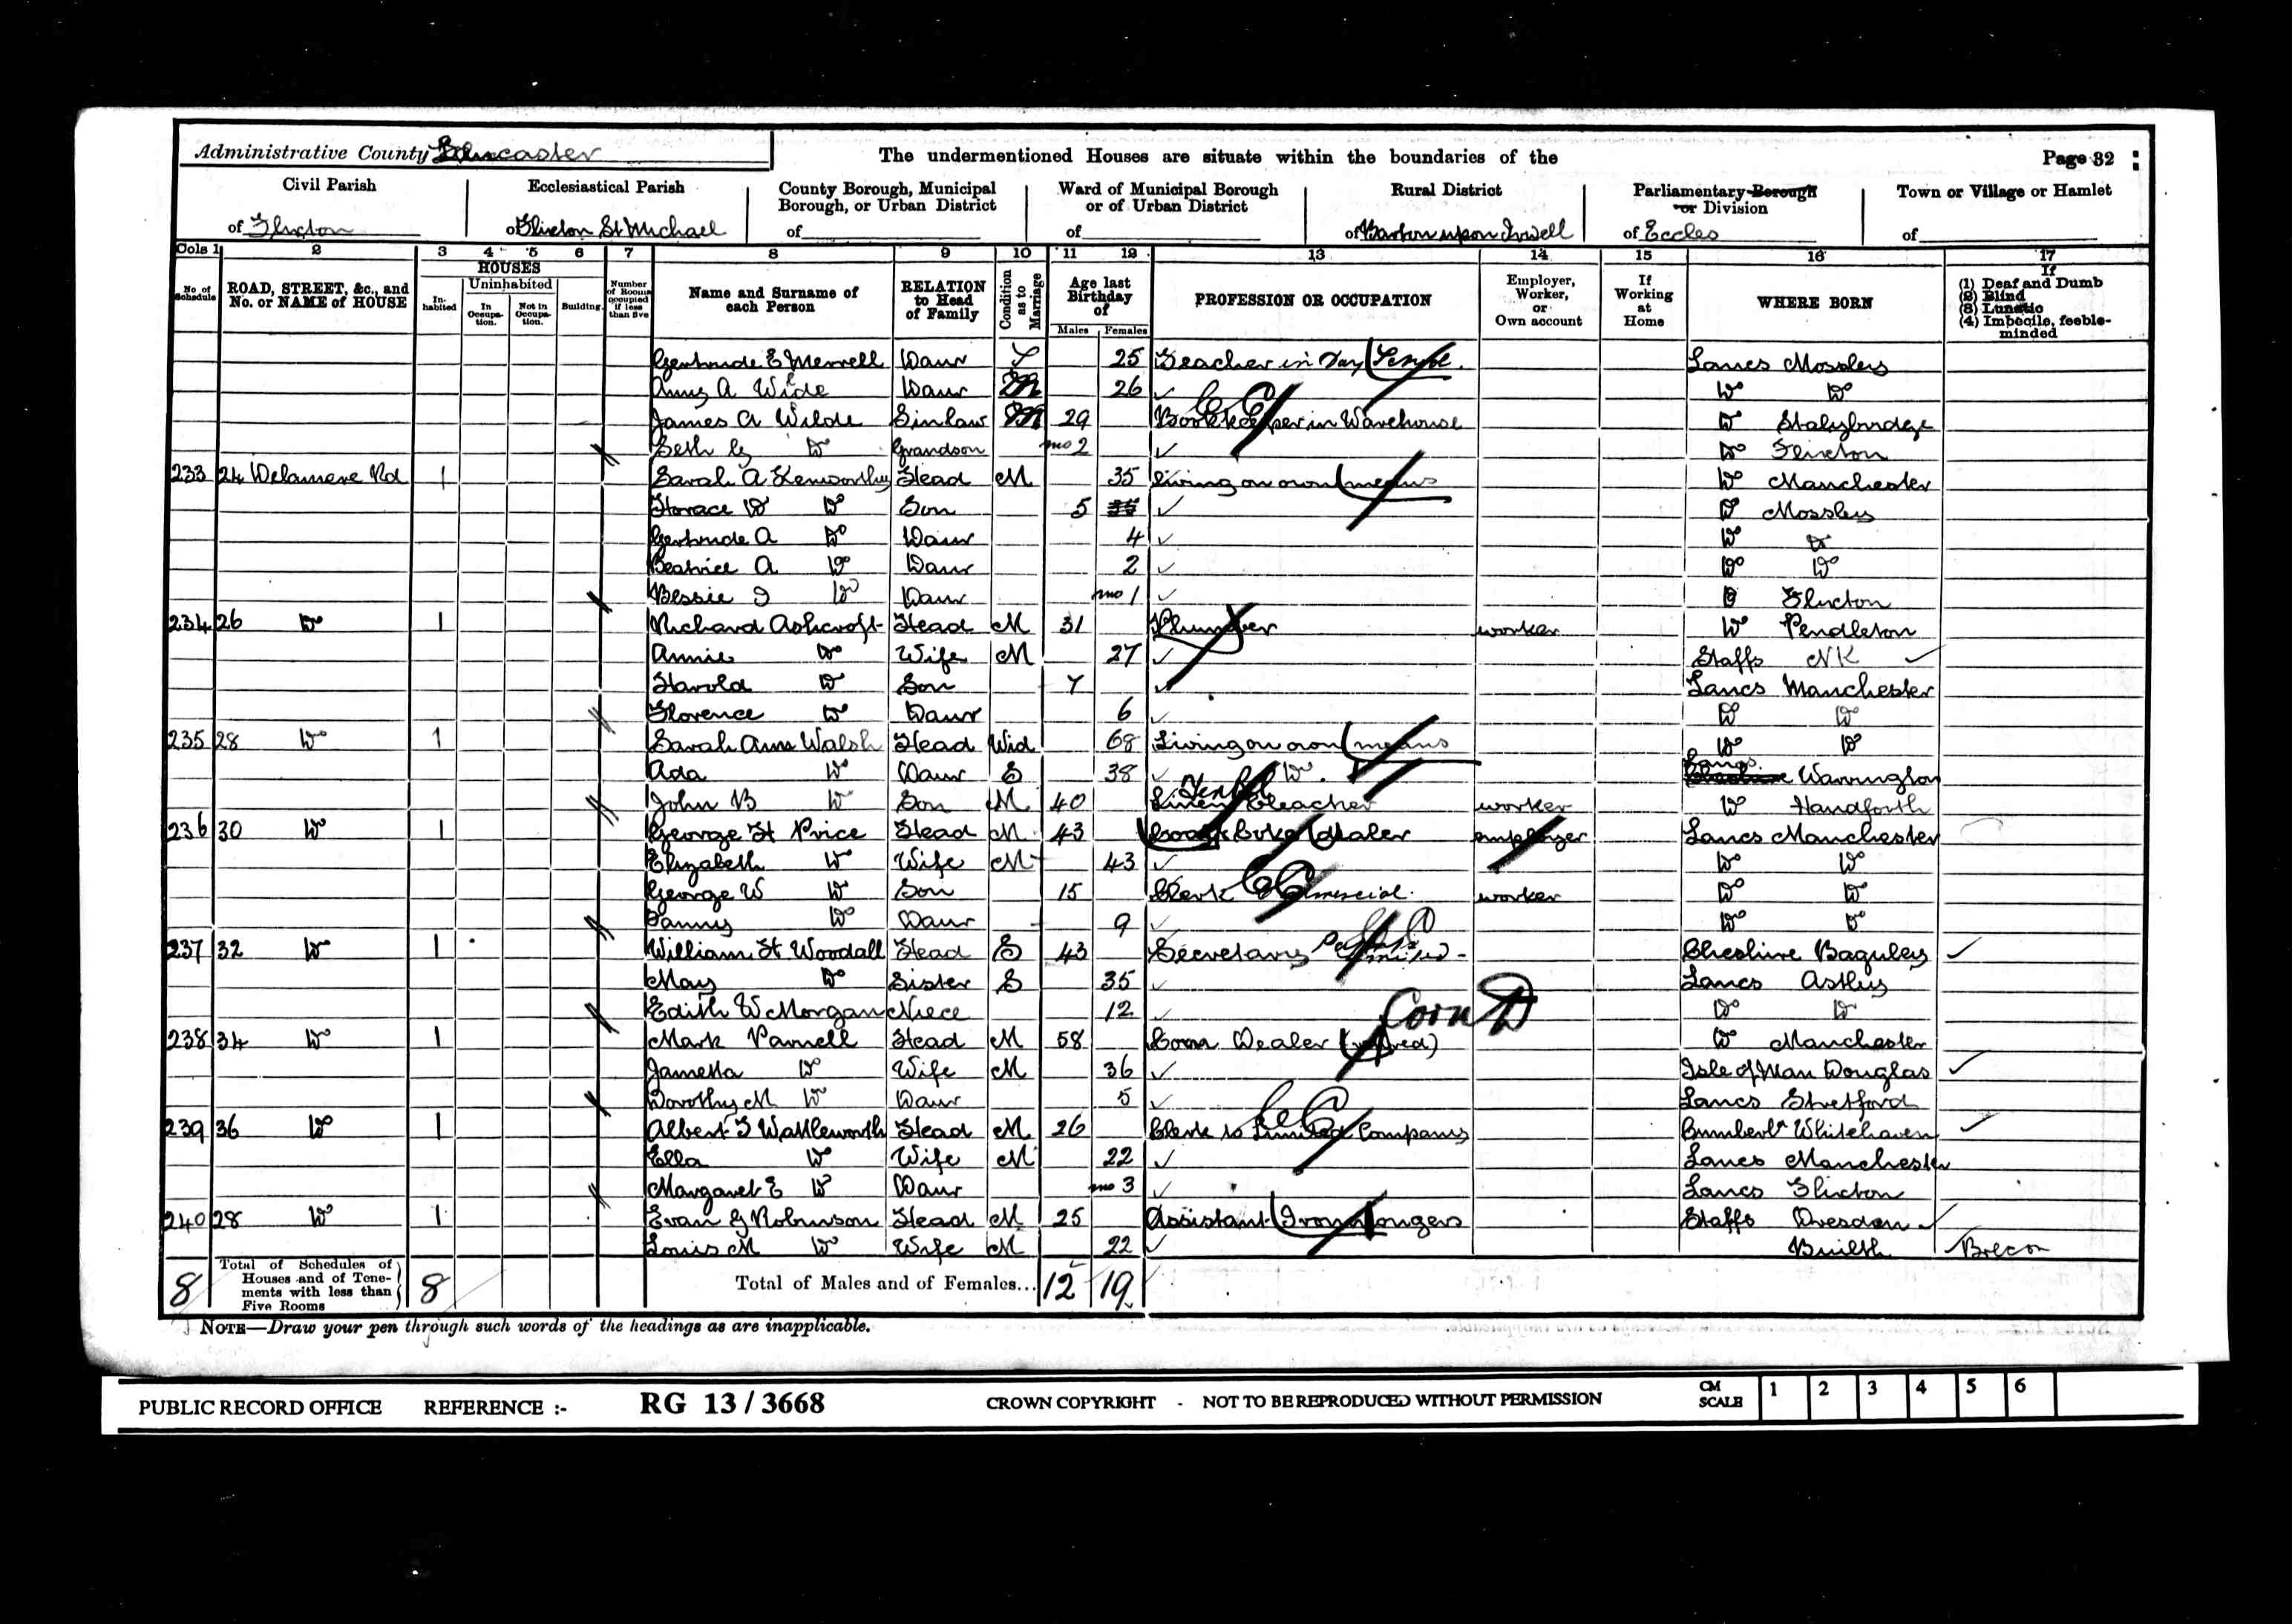 Administrative County Lancaster
The undermentioned Houses are situate within the boundaries of the
Page 32
Civil Parish
of Flixton
Ecclesiastical Parish
of Flixton St Michael
County Borough, Municipal Borough, or Urban District
of
Ward of Municipal Borough or of Urban District
of
Rural District
of Barton upon Irwell
Parliamentary Borough or Division
of Eccles
Town or Village or Hamlet
of
Cols 1 2 3 4 5 6 7 8 9 10 11 12 13 14 15 16 17
No. of Schedule
ROAD, STREET, &c., and No. or NAME of HOUSE
HOUSES
In-habited
Uninhabited
In Occupa-tion.
Not in Occupa-tion.
Building.
Number of Rooms occupied if less than five
Name and Surname of each Person
RELATION to Head of Family
Condition as to Marriage
Age last Birthday of
Males Females
PROFESSION OR OCCUPATION
Employer, Worker, or Own account
If Working at Home
WHERE BORN
If
(1) Deaf and Dumb
(2) Blind
(3) Lunatic
(4) Imbecile, feeble-minded
Gertrude E Merrell Daur S 25 Teacher in Day Lancs Mossley
Amy A Wilde Daur M 26 Do Do
James A Wilde Sinlaw M 29 Bookkeeper in Warehouse Do Stalybridge
Seth G Do Grandson mo 2 Do Flixton
233 24 Delamere Rd 1 Sarah A Kenworthy Head M 35 Living on own means Do Manchester
Horace W Do Son 5 Do Mossley
Gertrude A Do Daur 4 Do Do
Beatrice A Do Daur 2 Do Do
Bessie I Do Daur mo 1 Do Flixton
234 26 Do 1 Richard Ashcroft Head M 31 Plumber worker Do Pendleton
Annie Do Wife M 27 Staffs NK
Harold Do Son 7 Lancs Manchester
Florence Do Daur 6 Do Do
235 28 Do 1 Sarah Ann Walsh Head Wid 68 Living on own means Do Do
Ada Do Daur S 38 Do Lancs. Warrington
John B Do Son M 40 Linen Bleacher worker Do Handforth
236 30 Do 1 George H Price Head M 43 Dealer employer Lancs Manchester
Elizabeth Do Wife M 43 Do Do
George W Do Son 15 Clerk Commercial worker Do Do
Fanny Do Daur 9 Do Do
237 32 Do 1 William H Woodall Head S 43 Secretary Limited Cheshire Baguley
Mary Do Sister S 35 Lancs Astley
Edith W Morgan Niece 12 Do Do
Corn D
238 34 Do 1 Mark Parnell Head M 58 Corn Dealer (retired) Do Manchester
Jametta Do Wife M 36 Isle of Man Douglas
Dorothy M Do Daur 5 Lancs Stretford
239 36 Do 1 Albert T Wattleworth Head M 26 Clerk to Limited Company Cumberld Whitehaven
Ella Do Wife M 22 Lancs Manchester
Margaret E Do Daur mo 3 Lancs Flixton
240 28 Do 1 Evan G Robinson Head M 25 Assistant Ironmongers Staffs Dresden
Louis M Do Wife M 22 Builth Brecon
8 Total of Schedules of Houses and of Tenements with less than Five Rooms 8 Total of Males and of Females... 12 19
NOTE—Draw your pen through such words of the headings as are inapplicable.
PUBLIC RECORD OFFICE REFERENCE :- RG 13 / 3668 CROWN COPYRIGHT - NOT TO BE REPRODUCED WITHOUT PERMISSION CM SCALE 1 2 3 4 5 6